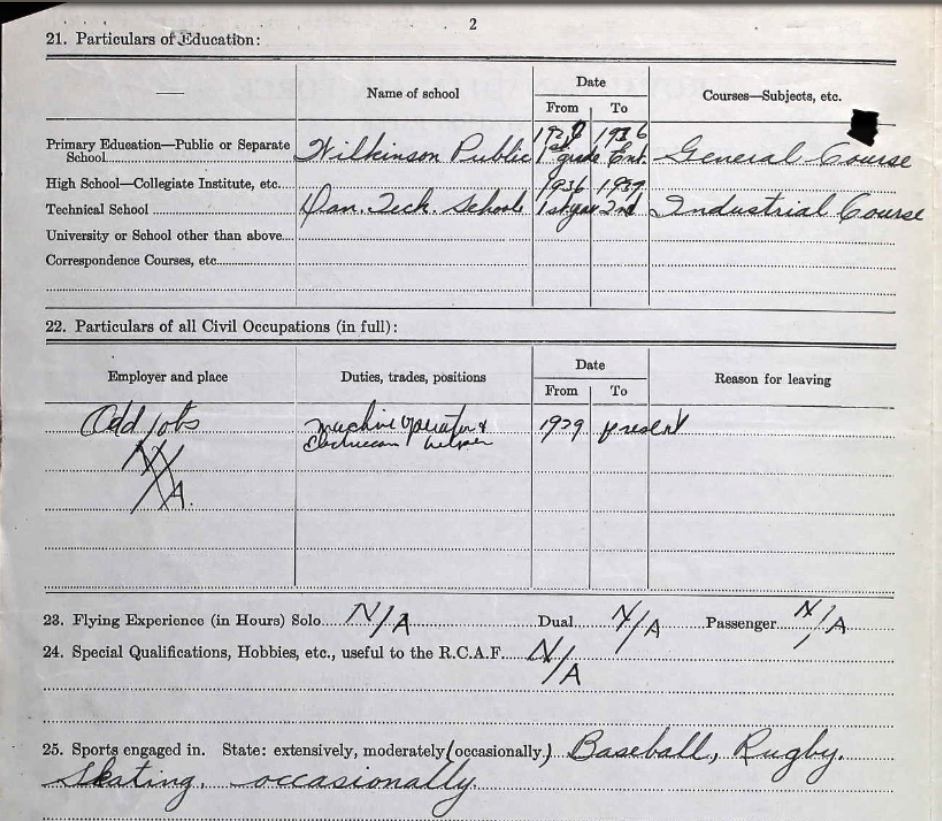 2
21. Particulars of Education:
Name of school
Date
From To
Courses—Subjects, etc.
1936
Primary Education—Public or Separate
School Wilkinson Public 1st grade Ent. General Course
High School—Collegiate Institute, etc. 1936 1939
Technical School Dan. Tech. School 1st year 2nd Industrial Course
University or School other than above
Correspondence Courses, etc.
22. Particulars of all Civil Occupations (in full):
Employer and place
Duties, trades, positions
Date
From To
Reason for leaving
Odd Jobs machine operator & 1939 present
Electrician helper
N/A.
23. Flying Experience (in Hours) Solo N/A Dual N/A Passenger N/A
24. Special Qualifications, Hobbies, etc., useful to the R.C.A.F. N/A
25. Sports engaged in. State: extensively, moderately (occasionally.) Baseball, Rugby.
Skating, occasionally.